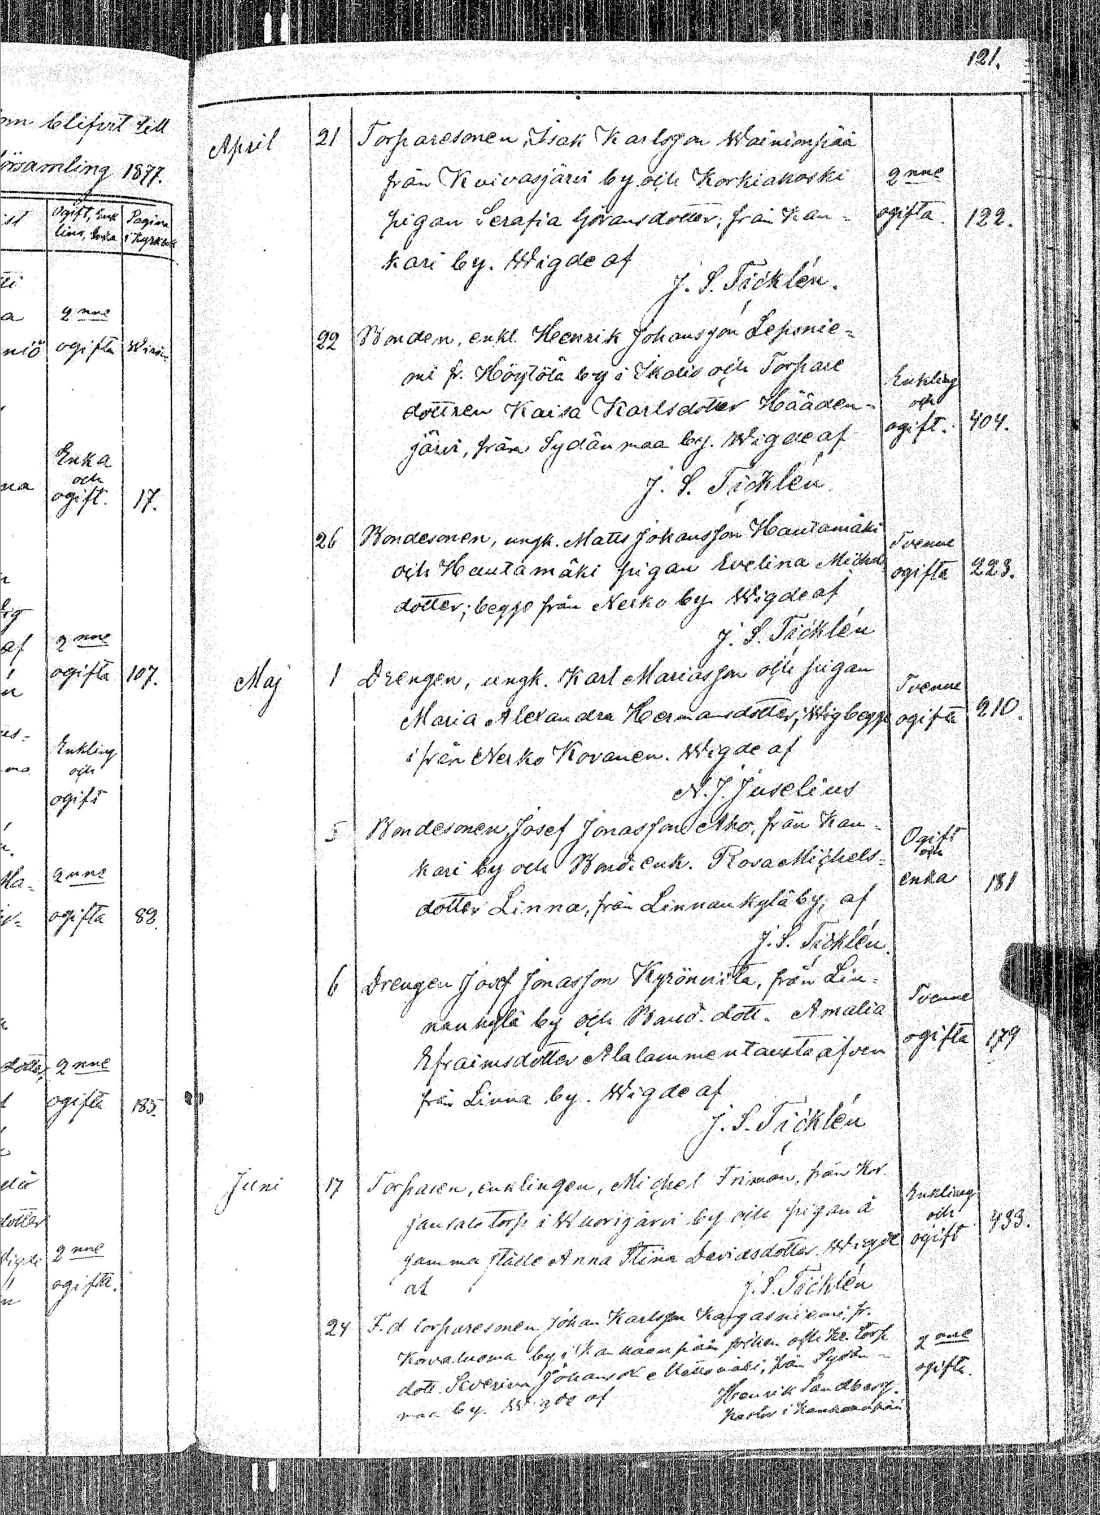 121.
om blifvit till
församling 1877.
Ogift, Enk
ling, Enka
Pagina
i Kyrkob
2 nne
ogifta
Enka
och
ogift.
17.
2 nne
ogifta
107.
Enkling
och
ogift
2 nne
ogifta
dotter,
2 nne
ogifta
185.
dotter
2 nne
ogifta.
April
21
Torparesonen, Isak Karlsson Wainionpää
från Kuivasjärvi by och Korkiakoski
pigan Serafia Göransdotter, från Kan-
kari by. Wigde af
J. S. Ticklén.
2 nne
ogifta.
122.
22
Bonden, enkl. Henrik Johansson Leponie-
mi fr. Höytölä by i Ikalis och Torpare
dottren Kaisa Karlsdotter Hääden-
järvi, från Sydänmaa by. Wigde af
J. S. Ticklén
Enkling
och
ogift.
404.
26
Bondesonen, ungk. Matts Johansson Hautamäki
och Hautamäki pigan Evelina Michels
dotter; begge från Nerko by. Wigde af
J. S. Ticklén
Tvenne
ogifta
223.
Maj
1
Drengen, ungk. Karl Mariasson och pigan
Maria Alexandra Hermansdotter; begge
ifrån Nerko Kovanen. Wigde af
N. J. Juselius
Tvenne
ogifta
210.
5
Bondesonen, Josef Jonasson Aho, från Kan-
kari by och Bond.enk. Rosa Michels-
dotter Linna, från Linnankylä by; af
J. S. Ticklén.
Ogift
och
enka
181
6
Drengen Josef Jonasson Kyrönviita, från Lin-
nankylä by och Bond. dott. Amalia
Efraimsdotter Alalammentausta äfven
från Linna by. Wigde af
J. S. Ticklén
Tvenne
ogifta
179
Juni
17
Torparen, enklingen, Michel Friman, från
torp i Wuorijärvi by och pigan å
samma ställe Anna Stina Davidsdotter. Wigde
af
J. S. Ticklén
Enkling
och
ogift
433.
24
F.d torparesonen Johan Karlsson Kangasniemi, fr.
Korvaluoma by i Kankaanpää socken och torp
dott. Severina Johansdr Mattsmäki, från Sydän-
maa by. Wigde af
Henrik Sandberg.
Pastor i Kankaanpää
2 nne
ogifta.